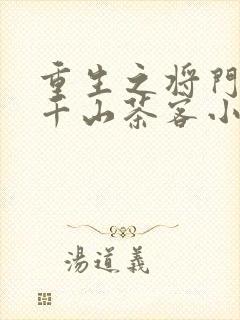 重生之将门
千山茶客小
湯道義